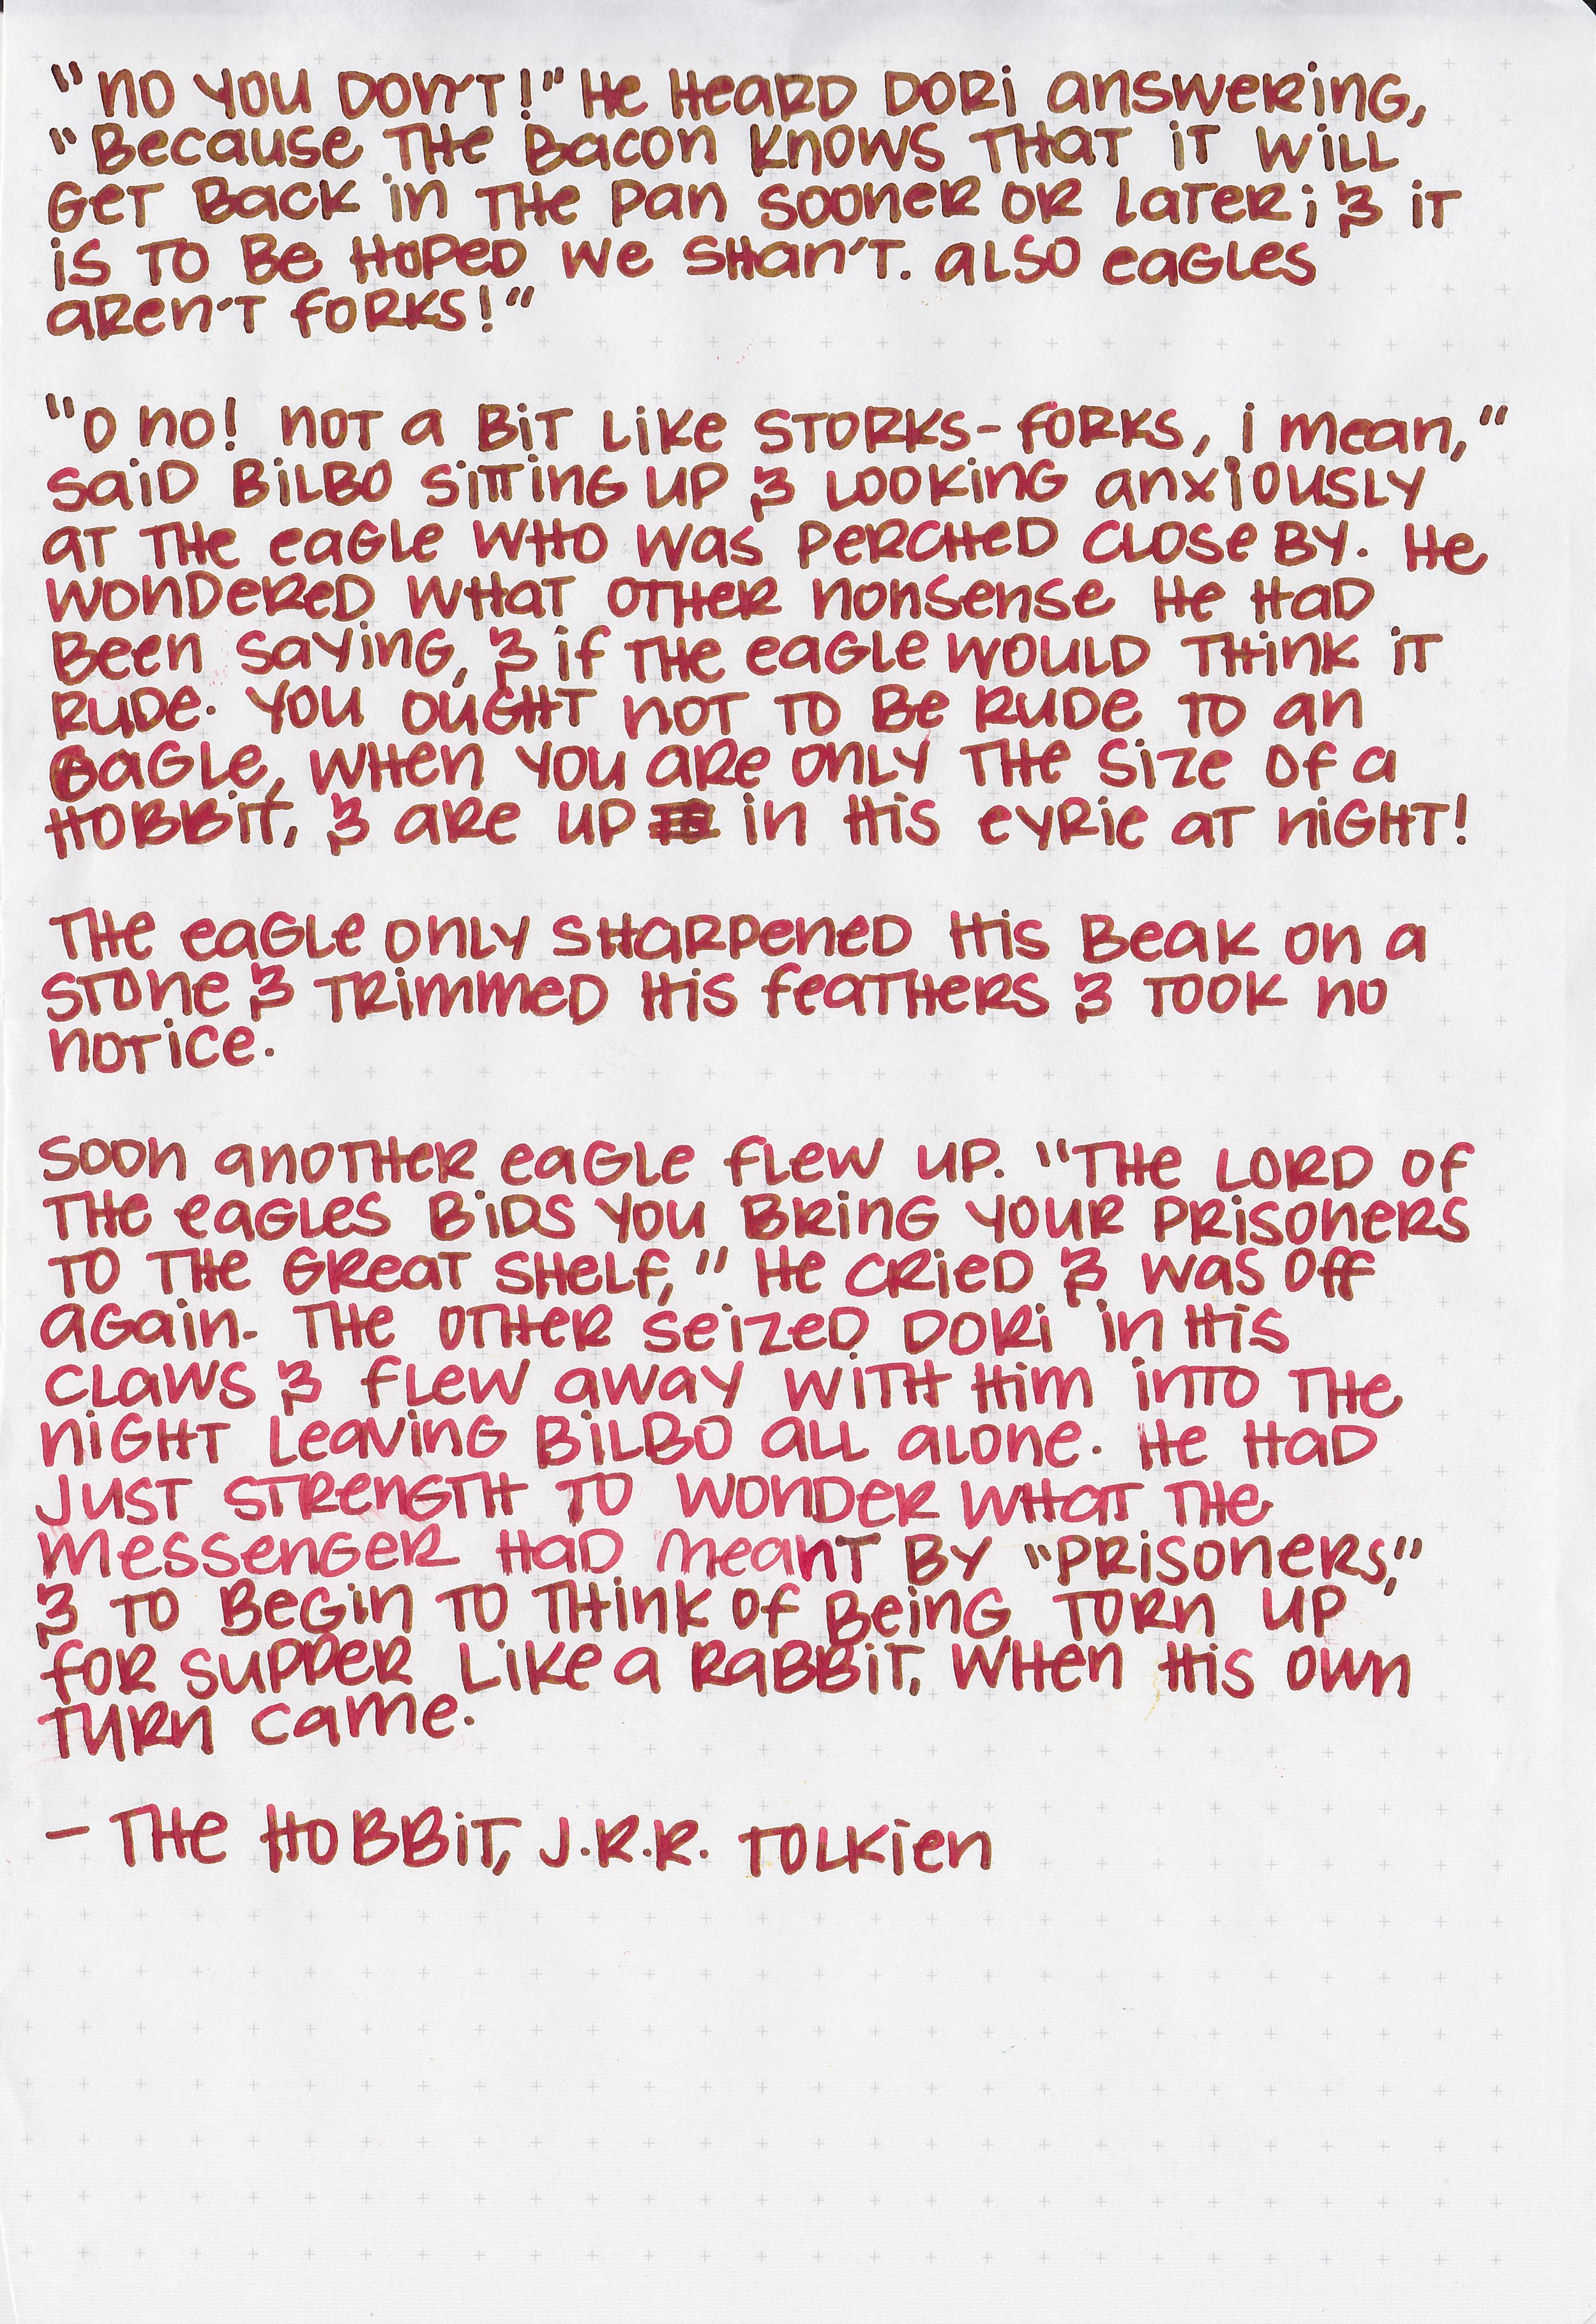 "No you don't!" He heard Dori answering,
"Because the bacon knows that it will
get back in the pan sooner or later; & it
is to be hoped we shan't. Also eagles
aren't forks!"
"O no! Not a bit like storks-forks, I mean,"
said Bilbo sitting up & looking anxiously
at the eagle who was perched close by. He
wondered what other nonsense he had
been saying, & if the eagle would think it
rude. You ought not to be rude to an
eagle, when you are only the size of a
hobbit, & are up in his eyrie at night!
The eagle only sharpened his beak on a
stone & trimmed his feathers & took no
notice.
Soon another eagle flew up. "The Lord of
the Eagles bids you bring your prisoners
to the Great Shelf," he cried & was off
again. The other seized Dori in his
claws & flew away with him into the
night leaving Bilbo all alone. He had
just strength to wonder what the
messenger had meant by "prisoners,"
& to begin to think of being torn up
for supper like a rabbit, when his own
turn came.
- The Hobbit, J.R.R. Tolkien